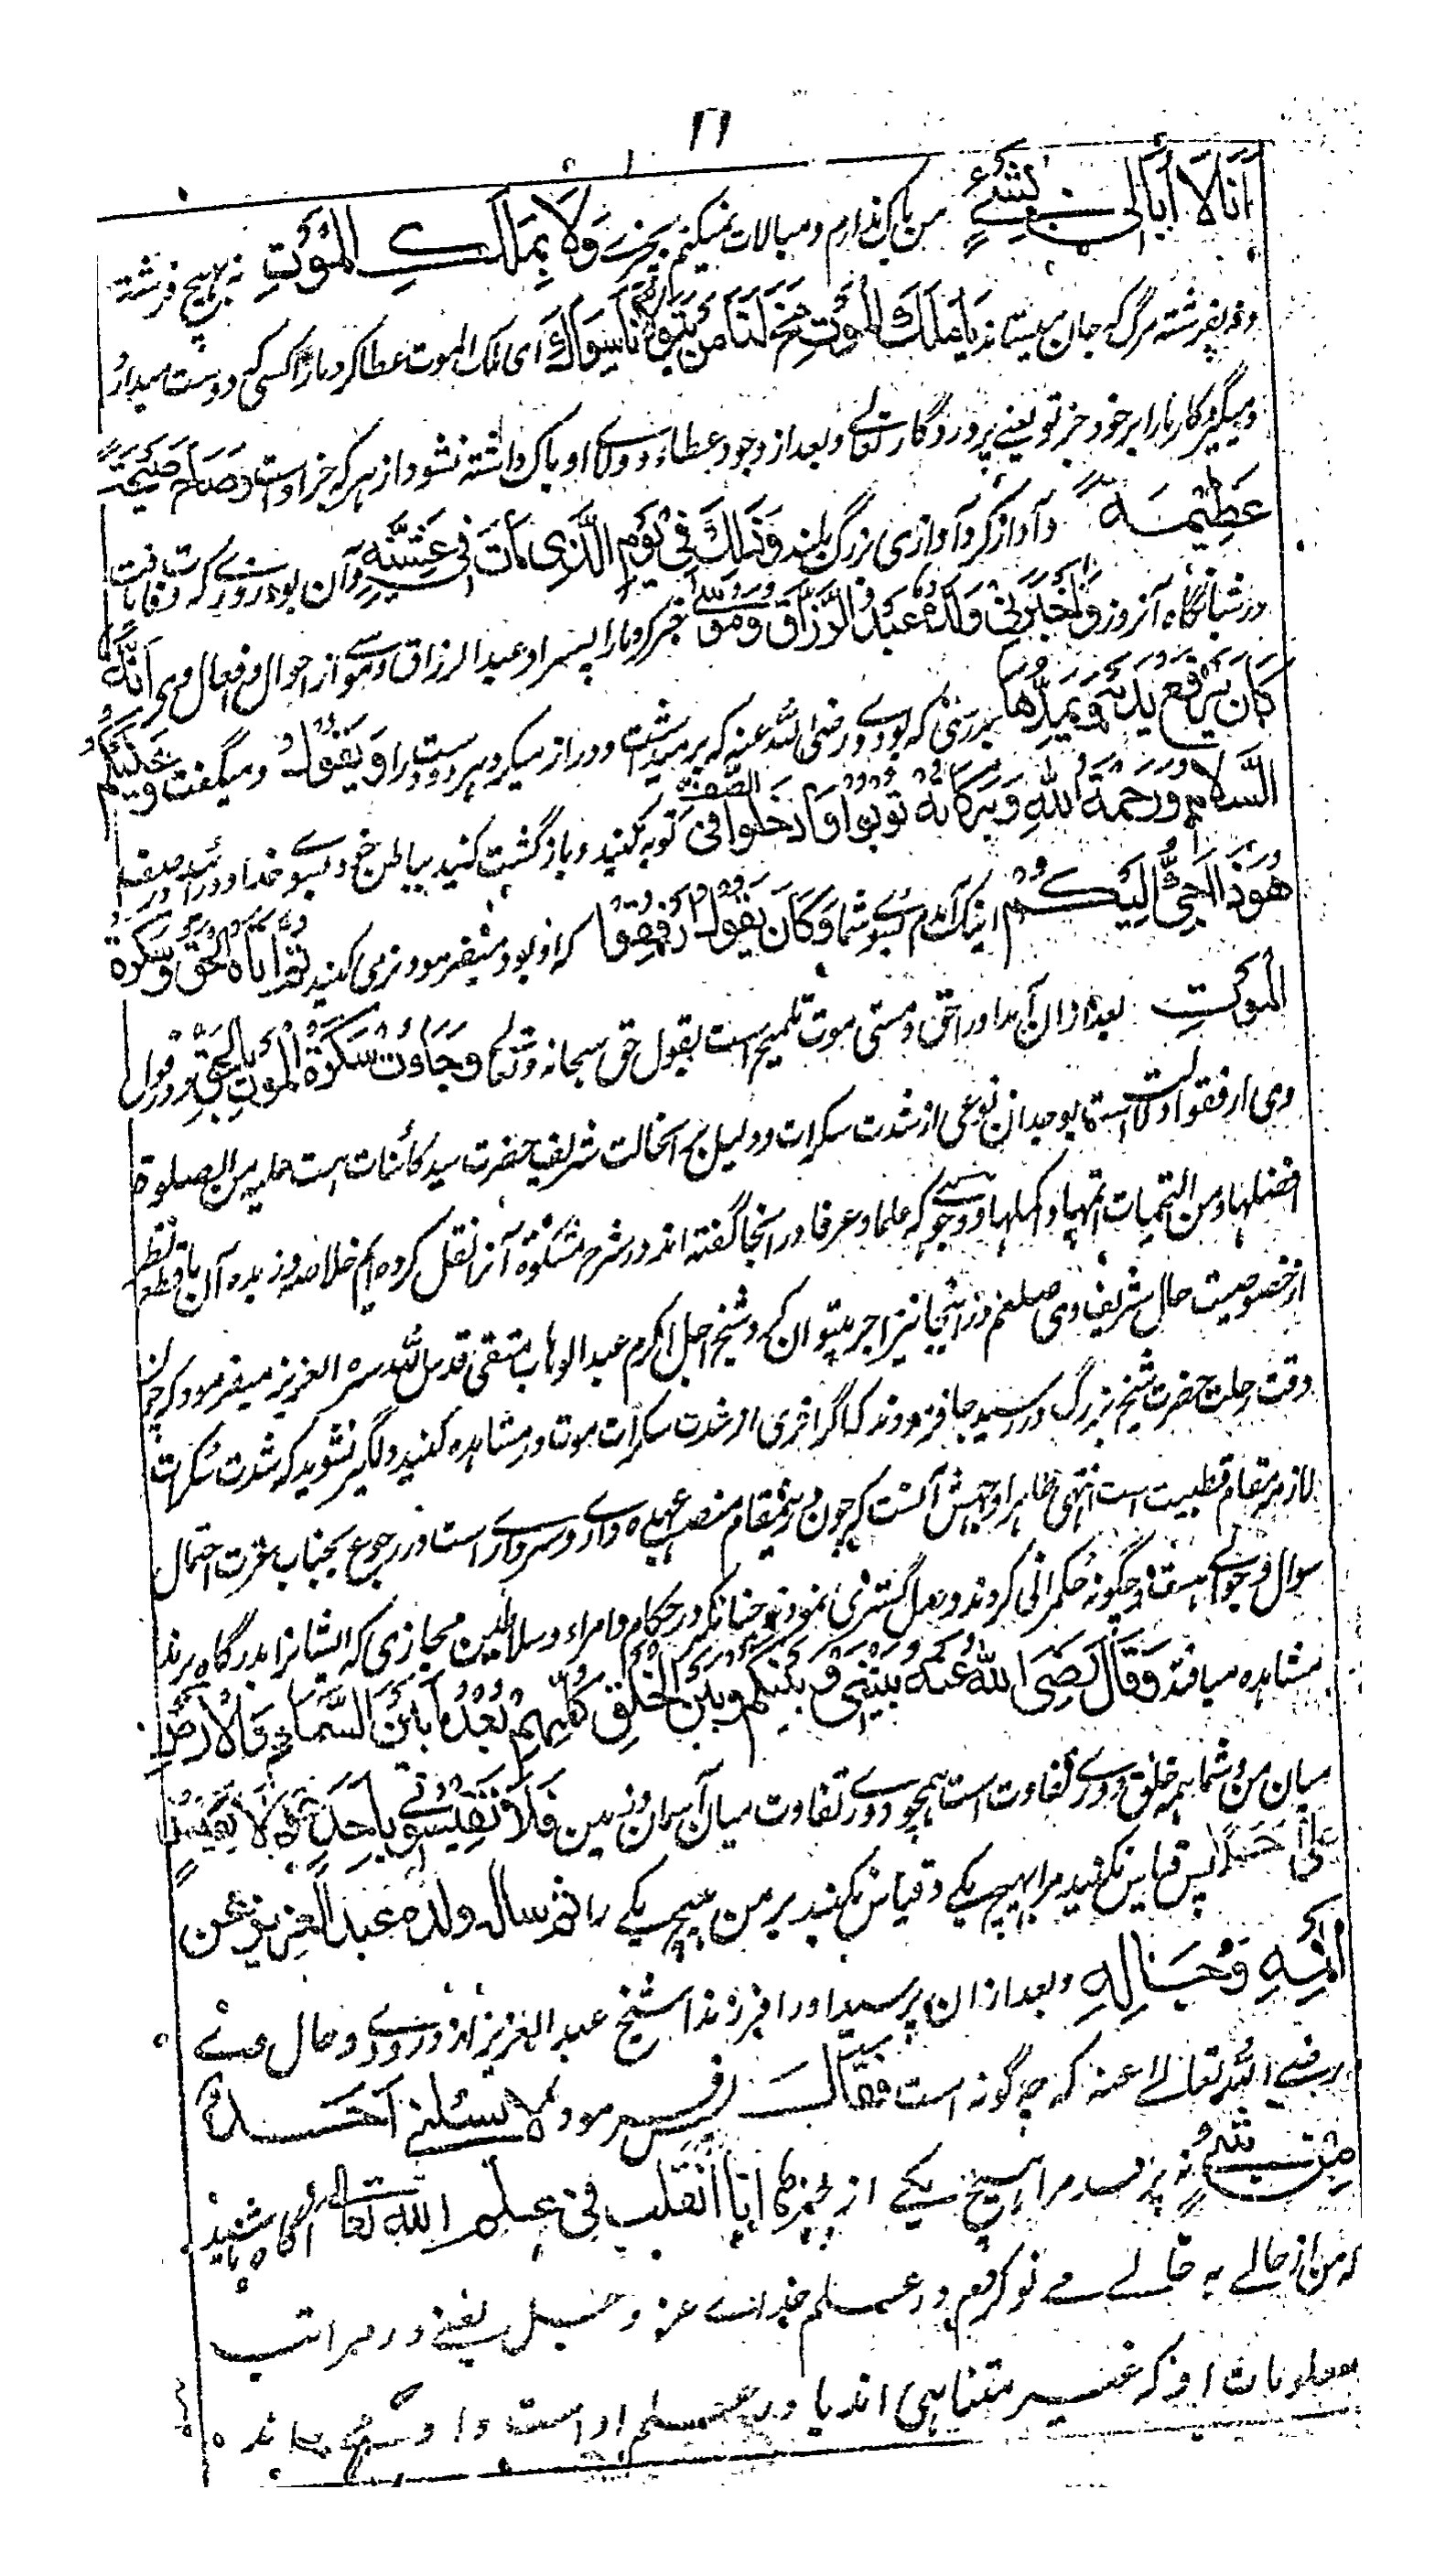 اَنَا لَا اُبَالِیْ بِشَیْءٍ من باک ندارم و مبالات نمیکنم بچیزے وَلَا بِمَلَكِ الْمَوْتِ نه بهیچ فرشته
و نه بفرشته مرگ که جان میستاند یَا مَلَكَ الْمَوْتِ مَنَحَ لَنَا مَنْ یَّتَوَلَّانَا سِوَاكَ ای ملک الموت عطا کرد مارا کسی که دوست میدارد
و میگیرد کار مارا بر خود جز تو یعنے پروردگار تعالے و بعد از وجود عطاء و ولاے او باک داشته نشود از هر که جز اوست وَصَاحَ صَیْحَةً
عَظِیْمَةً و آواز کرد آوازی بزرگ بلند وَذٰلِكَ فِیْ یَوْمِ الَّذِیْ مَاتَ فِیْ عَشِیَّتِهٖ و آن بود روزے که وفات یافت
در شبانگاه آنروز وَاَخْبَرَنِیْ وَلَدَاهُ عَبْدُ الرَّزَّاقِ وَمُوْسٰی خبر کرد مارا پسر او عبد الرزاق و موسے از احوال و افعال وی اَنَّهٗ
كَانَ یَرْفَعُ یَدَیْهِ وَیَمُدُّهَا بدرستی که بود وے رضی الله عنه که بر میداشت و دراز میکرد هر دو دست را وَیَقُوْلُ و میگفت وَعَلَیْكُمُ
السَّلَامُ وَرَحْمَةُ اللهِ وَبَرَكَاتُهٗ تُوْبُوْا وَادْخُلُوْا فِی الصَّفِّ توبه بکنید و بازگشت کنید بباطن خود بسوے خدا و در آئید در صف
هُوَذَا اَجِیْءُ اِلَیْكُمْ اینک آمدم بسوے شما وَكَانَ یَقُوْلُ ارْفُقُوْا که او بود میفرمود نرمی کنید ثُمَّ اَتَاهُ الْحَقُّ وَسَكْرَةُ
الْمَوْتِ بعد از ان آمد اورا حق و مستی موت تلمیح است بقول حق سبحانه و تعالی وَجَاءَتْ سَكْرَةُ الْمَوْتِ بِالْحَقِّ و در قول
وی ارفقوا دلالت است بوجدان نوعی از شدت سکرات و دلیل بر انحالت شریف حضرت سید کائنات است علیه من الصلوة
افضلها و من التحیات اتمها و اکملها و وجوهے که علما و عرفا در اینجا گفته اند و در شرح مشکوة آنرا نقل کرده ایم خلاصه و زبده آن با قطع نظر
از خصوصیت حال شریف وی صلعم در اینجا نیز اجر میتوان کرد و شیخ اجل اکرم عبد الوهاب متقی قدس الله سره العزیز میفرمود که چون
وقت رحلت حضرت شیخ بزرگ در رسید ما فرمودند که اگر اثری از شدت سکرات موت در مشاهده کنید دلگیر نشوید که شدت سکرات
لازم مقام قطبیت است انتهی ظاهرا وجهش آنست که چون درین مقام منصب عهده دارے و سردارے است در رجوع بجناب عزت احتمال
سوال و جوابے هست که چگونه حکمرانی کردند و عدل گستری نمودند چنانکه در حکام و امراء و سلاطین مجازی که ایشانرا بدرگاه برند
مشاهده میافتد وَقَالَ رَضِیَ اللهُ عَنْهُ بَیْنِیْ وَبَیْنَكُمْ وَبَیْنَ الْخَلْقِ كُلِّهِمْ بُعْدُ مَا بَیْنَ السَّمَاءِ وَالْاَرْضِ
میان من و شما و همه خلق دورے و تفاوت است همچو دورے و تفاوت میان آسمان و زمین فَلَا تَقِیْسُوْنِیْ بِاَحَدٍ وَّلَا تَقِیْسُوْا
عَلَیَّ اَحَدًا پس قیاس نکنید مرا بهیچ یکے و قیاس نکنید بر من هیچ یکے را ثم سال ولده عبد العزیز عن
اَلَمِهٖ وَحَالِهٖ و بعد از ان پرسید اورا فرزند او شیخ عبد العزیز از درد وے و حال وے
رضے الله تعالے عنه که چه گونه است فقال پس فرمود لا یسئلنی اَحَدٌ
عَنْ شَیْءٍ نه پرسد مرا هیچ یکے از چیزها انا انقلب فی علم الله تعالے آگاه باشید
که من از حالے به حالے مے نو کردم در علم خداے عز و جل یعنے در مراتب
معلومات او که غیر متناهی اند یا در علم او است